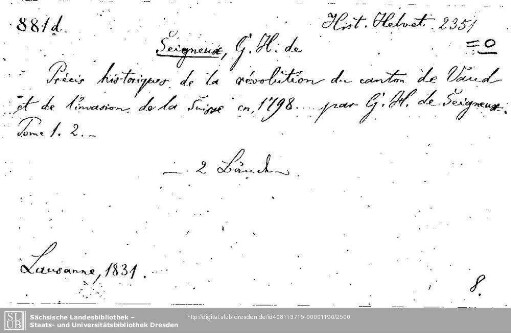 881d.
Hist. Helvet. 2351
=0
Seigneux, G. H. de
Précis historiques de la revolution du canton de Vaud
et de l'invasion de la Suisse en 1798. par G. H. de Seigneux.
Tome 1. 2.
2 Bände.
Lausanne, 1831.
8.
Sächsische Landesbibliothek –
Staats- und Universitätsbibliothek Dresden